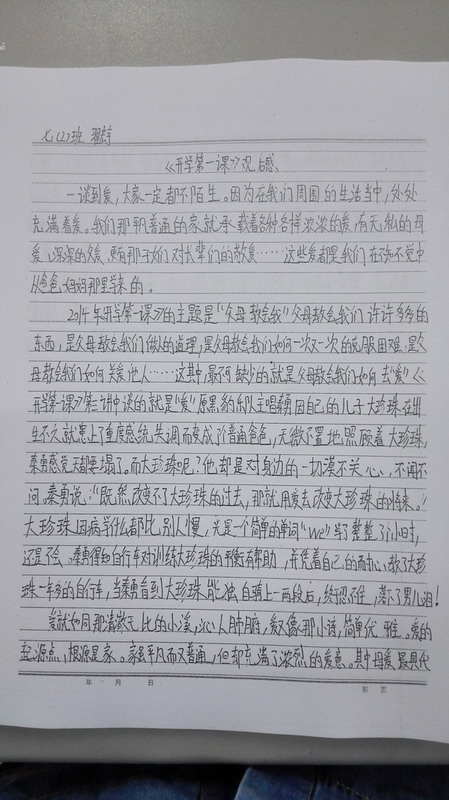 七(2)班
《开学第一课》观后感
一谈到爱,大家一定都不陌生。因为在我们周围的生活当中,处处
充满着爱。我们那平凡普通的家就承载着各种各样浓浓的爱,有无私的母
爱、深深的父爱、更有那子女们对长辈们的敬爱……这些爱都是我们在不知不觉中
从爸爸妈妈那里学来的。
开学第一课》的主题是“父母教会我”父母教会我们许许多多的
东西,是父母教会我们做人的道理,是父母教会我们如何一次又一次的克服困难,是父
母教会我们如何关爱他人……这其中最不可缺少的就是父母教会我们如何去“爱”《
开学第一课》第三讲中谈的就是“爱”原黑豹乐队主唱秦勇因自己的儿子大珍珠在出
生不久就患上了重度感统失调而变成了普通爸爸,无微不至地照顾着大珍珠,
秦勇感觉天都要塌了。而大珍珠呢?他却是对身边的一切漠不关心、不闻不
问。秦勇说:“既然改变不了大珍珠的过去,那就用爱去改变大珍珠的将来。”
大珍珠因病学什么都比别人慢,光是一个简单的单词“we”学了整整了小时,
还是不会。秦勇得知自行车对训练大珍珠的平衡有帮助,并凭着自己的耐心,教了大珍
珠一年多的自行车,当秦勇看到大珍珠能独自骑上一两段后,终忍不住,落下了男儿泪!
爱就如同那清澈无比的小溪,沁人肺腑,爱又像那小诗,简单优雅。爱的
起源点,根源是家。家虽平凡而又普通,但却充满了浓烈的爱意。其中母爱最具代
年 月 日
第 页